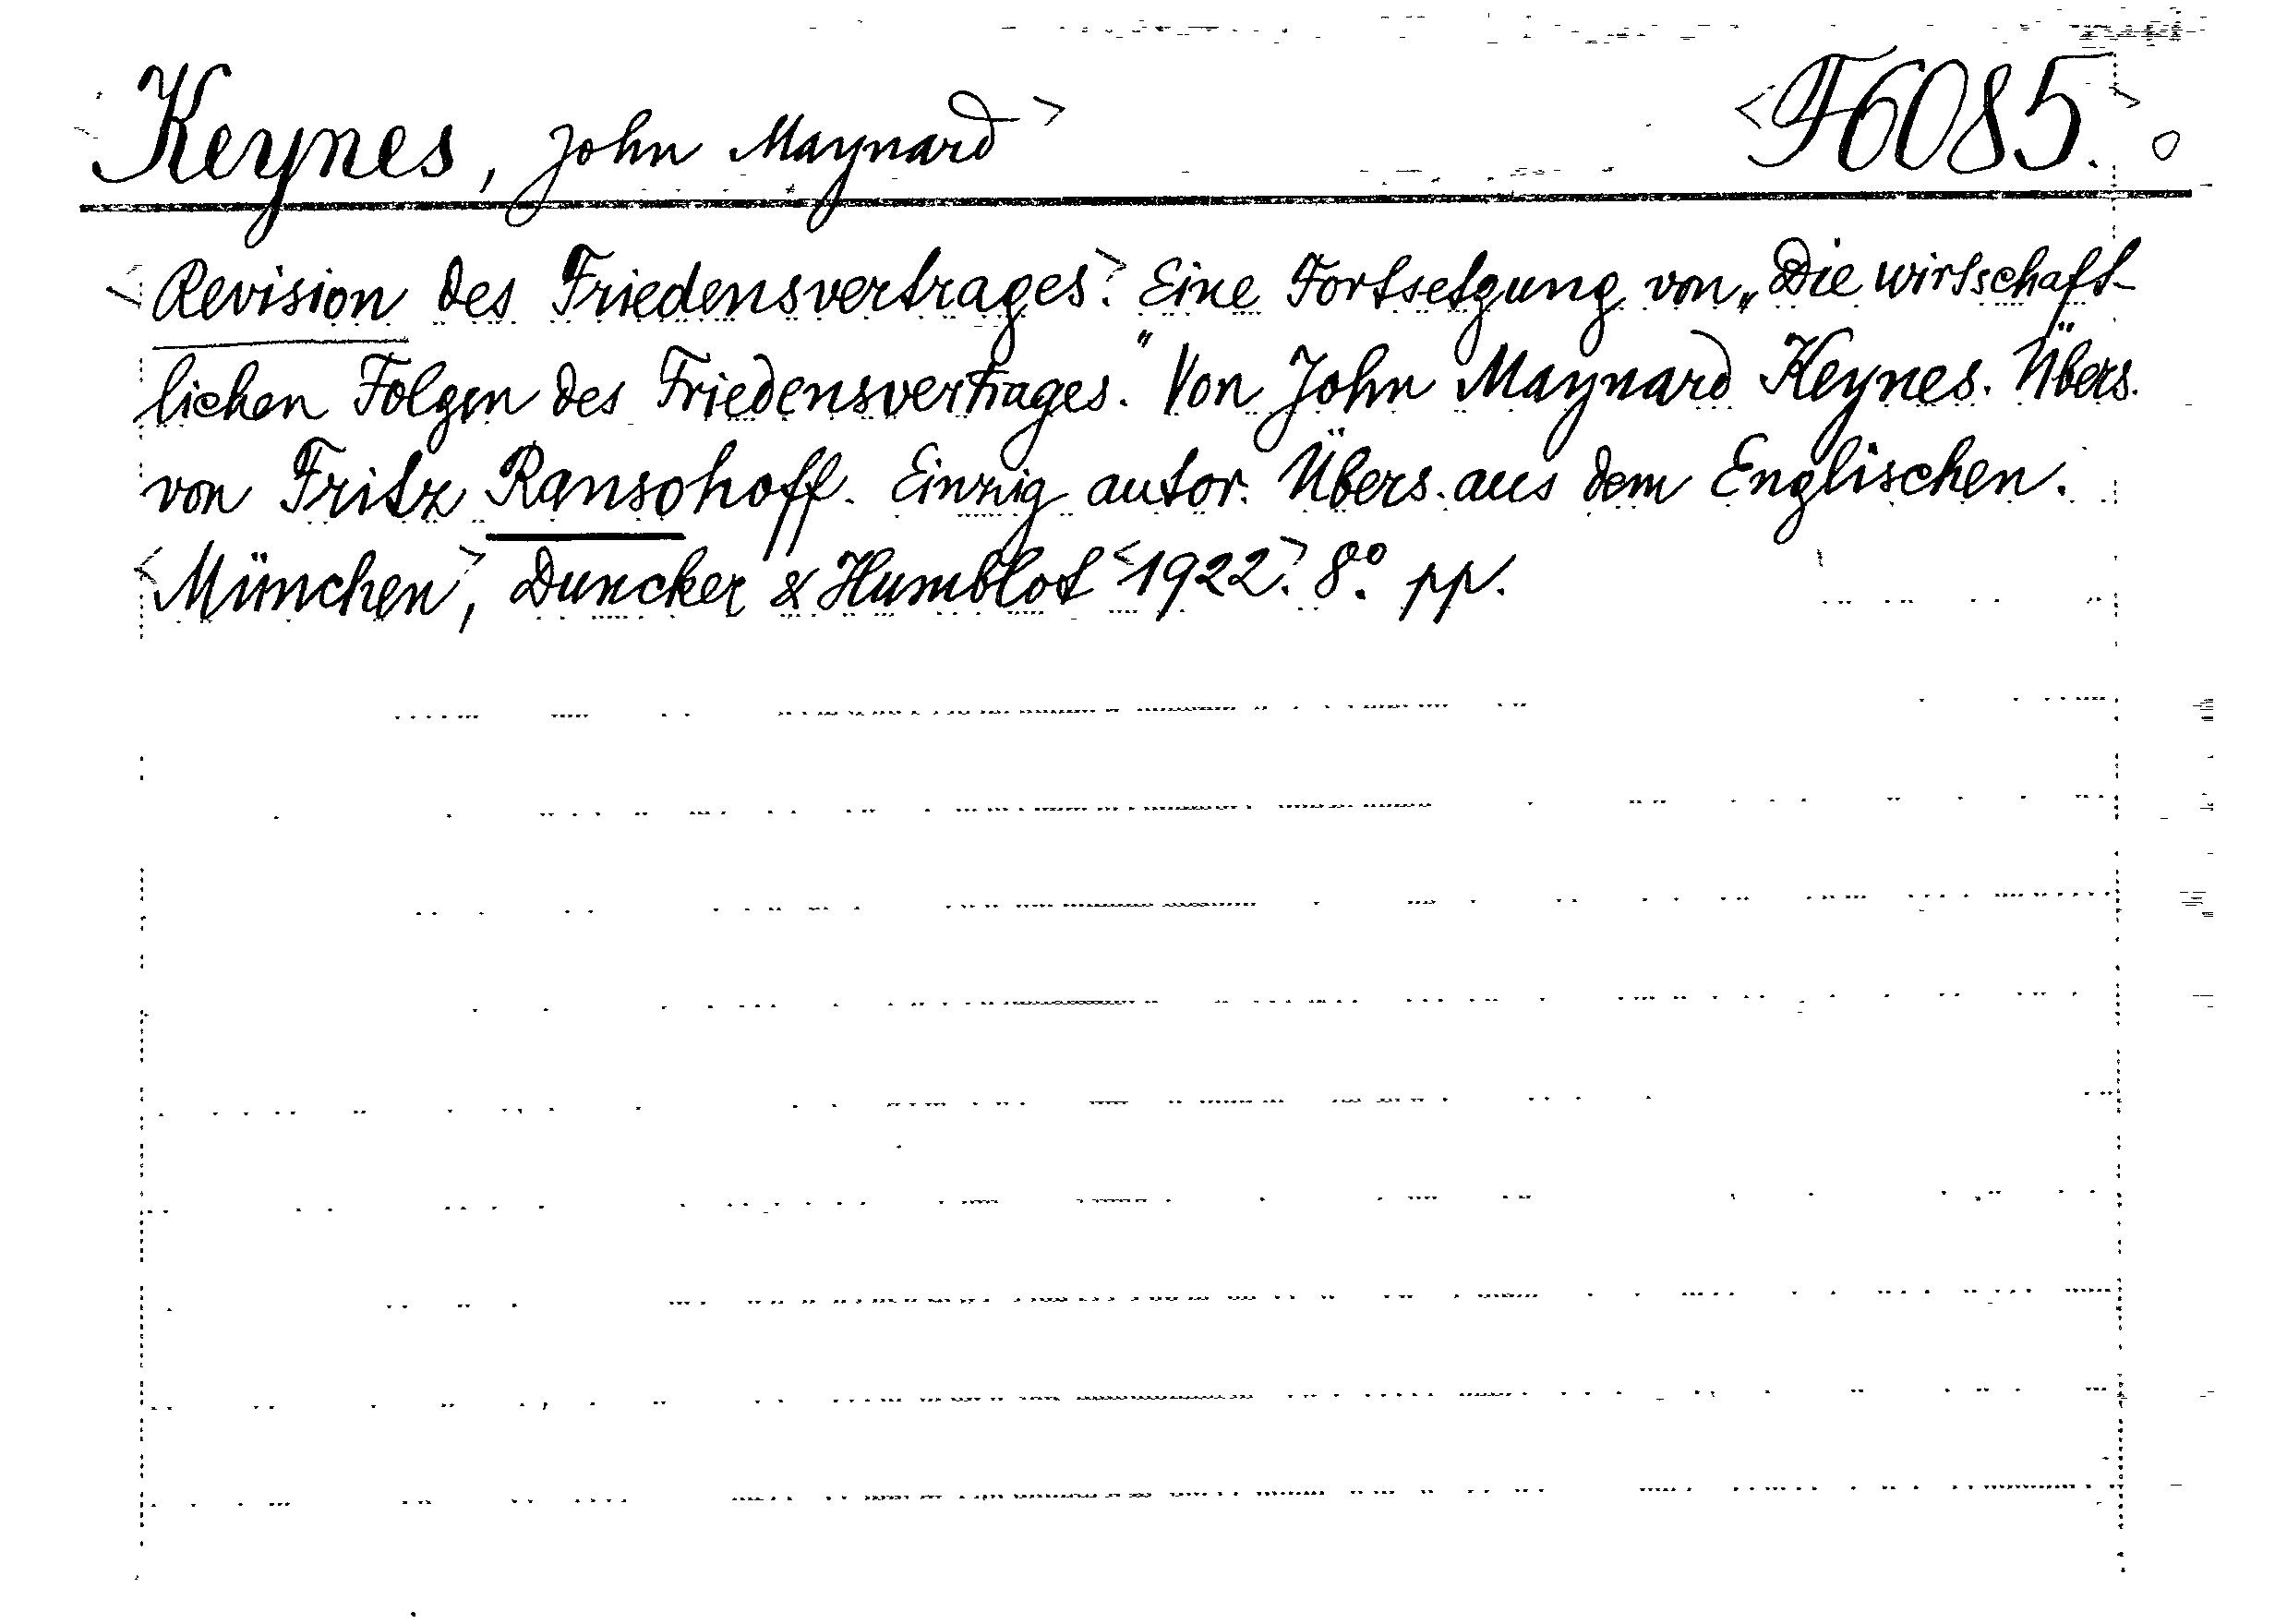 <Keynes, John Maynard> <F6085.>
<Revision des Friedensvertrages>. Eine Fortsetzung von „Die wirtschaft-
lichen Folgen des Friedensvertrages." Von John Maynard Keynes. Übers.
von Fritz Ransohoff. Einzig autor. Übers. aus dem Englischen.
<München>, Duncker & Humblot <1922>. 8°. pp.